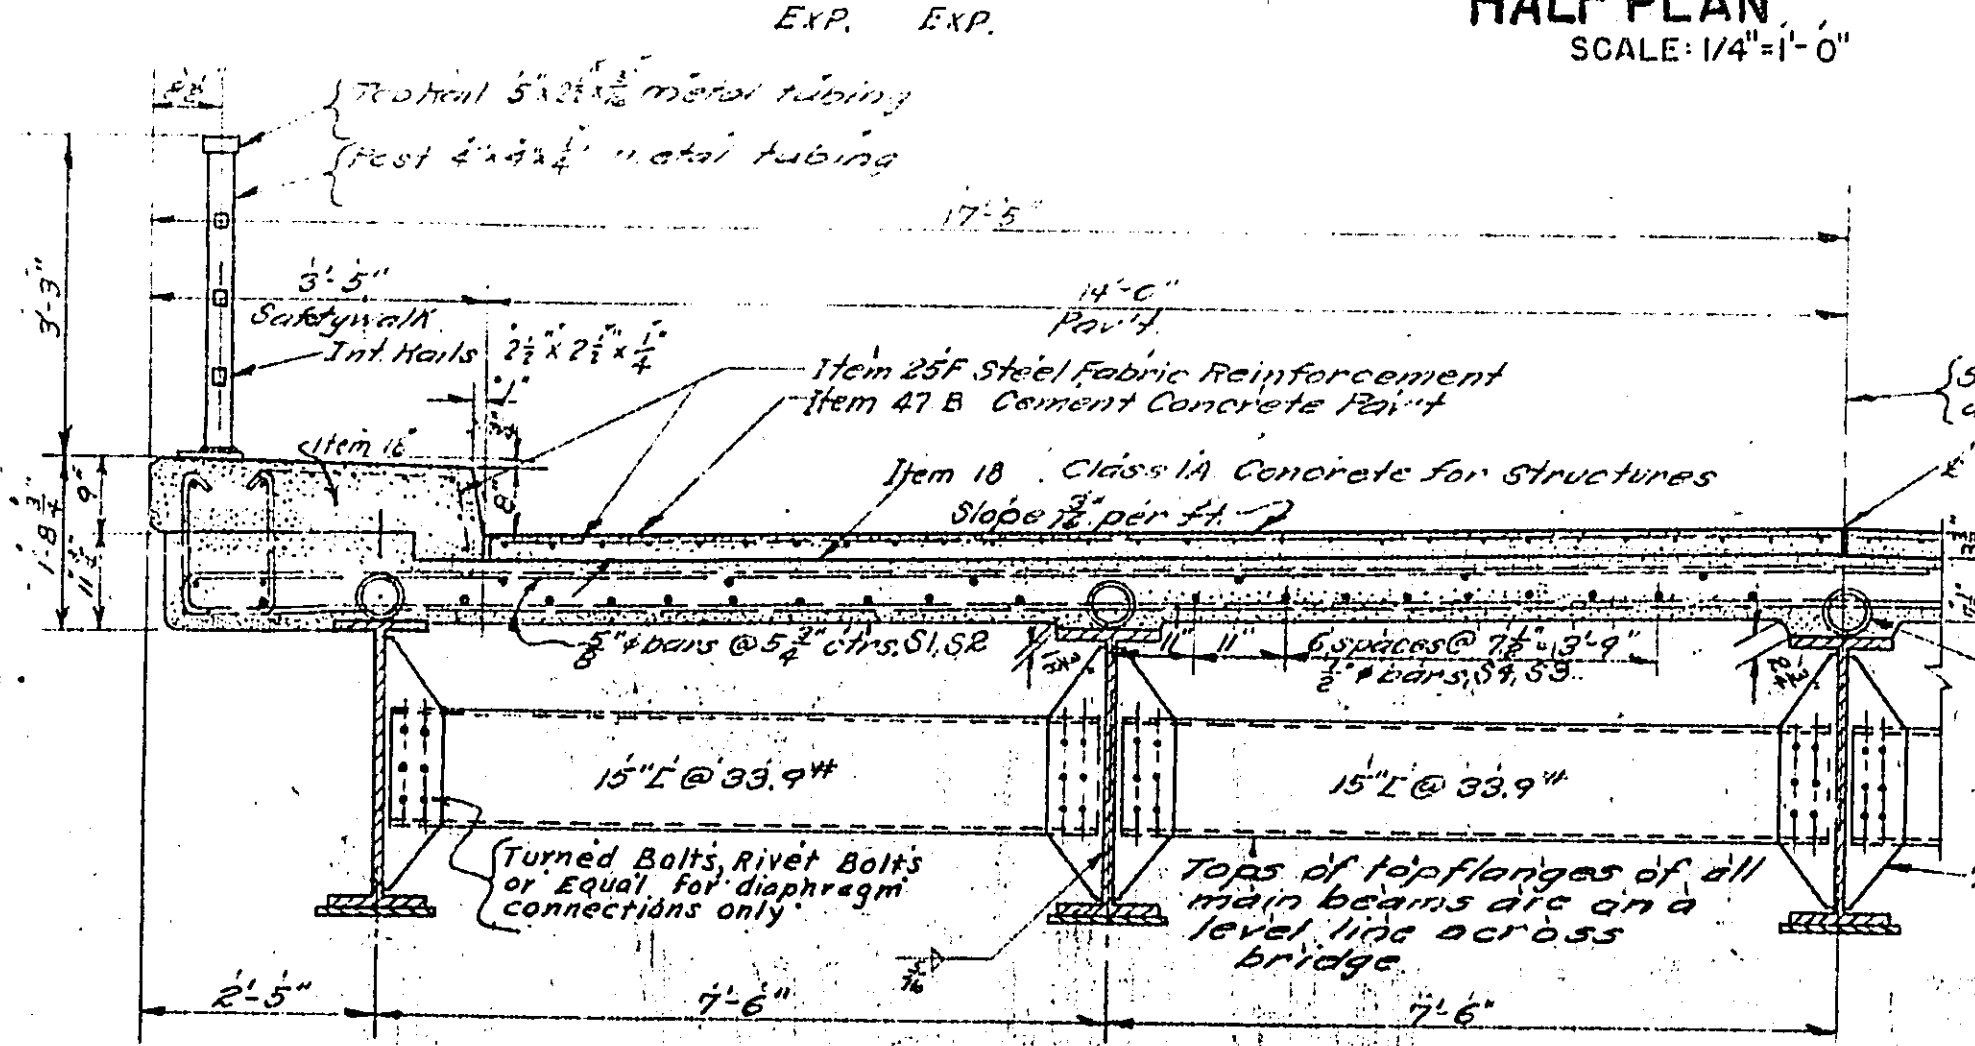 HALF PLAN
SCALE: 1/4"=1'-0"
EXP. EXP.
2½"
Top Rail 5"x2½"x3/16" metal tubing
Post 4"x4"x¼" metal tubing
17'-5"
3'-3"
3'-5"
Safetywalk
14'-0"
Pav't.
Int. Rails 2½"x2½"x¼"
1"
Item 25F Steel Fabric Reinforcement
Item 47B Cement Concrete Pav't
Item 18
Item 18 Class 1A Concrete for Structures
Slope per ft.
9"
8"
1'-8¾"
11¾"
⅝"ϕ bars @ 5¾" ctrs. S1, S2
11" 11"
6 spaces @ 7½"=3'-9"
½"ϕ bars, S4, S3
15"[ @ 33.9#
15"[ @ 33.9#
Turned Bolts, Rivet Bolts
or Equal for diaphragm
connections only.
Tops of top flanges of all
main beams are on a
level line across
bridge
5/16
2'-5"
7'-6"
7'-6"